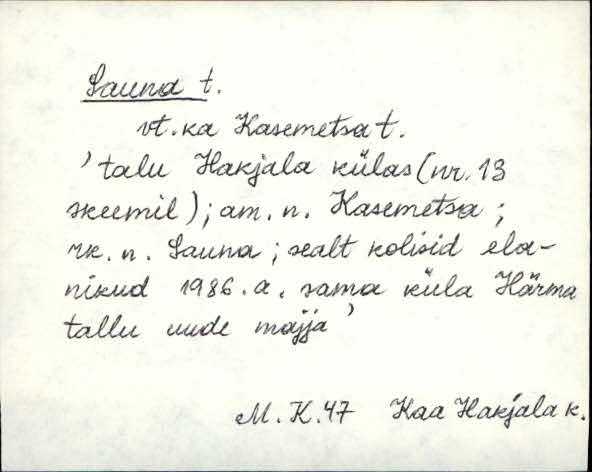 Sauna t.
vt. ka Kasemetsa t.
'talu Hakjala külas (nr. 13
skeemil); am. n. Kasemetsa;
rk. n. Sauna; sealt kolisid ela-
nikud 1986. a. sama küla Härma
tallu uude majja'
M. K. 47 Kaa Hakjala k.